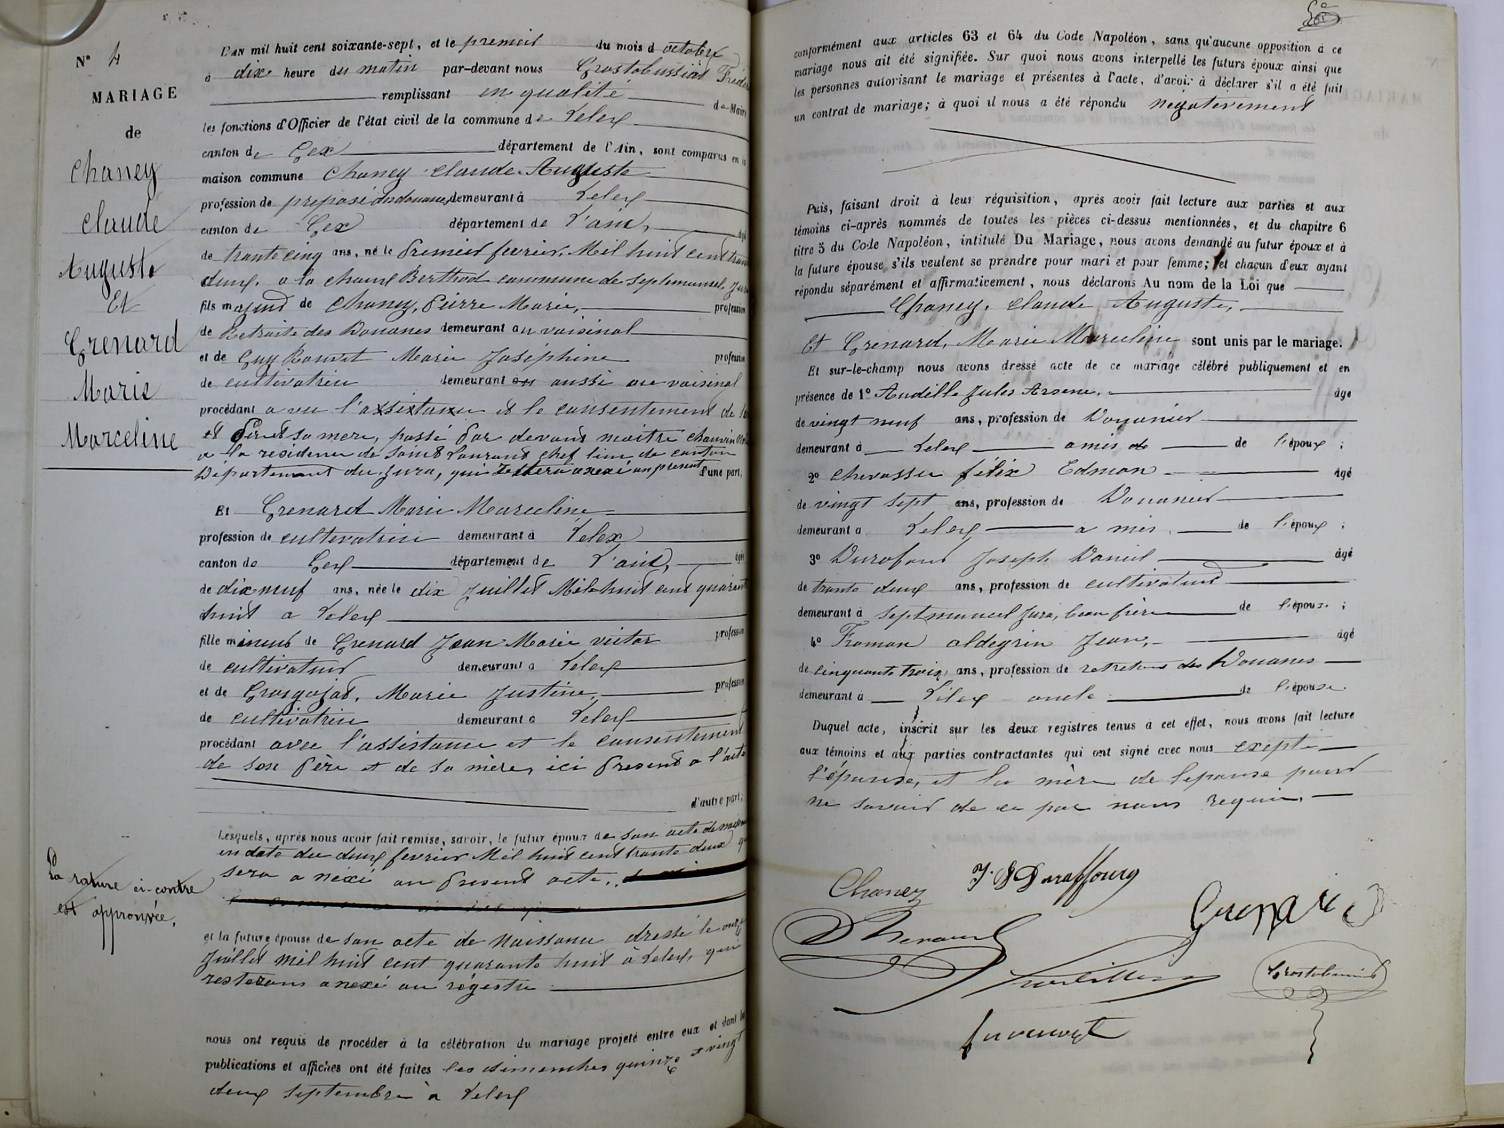 N° 4
MARIAGE
de
Chaney
Claude
Auguste
Et
Grenard
Marie
Marceline
L'AN mil huit cent soixante-sept, et le premier du mois d octobre
à dix heure du matin par-devant nous Grostabussiat Frédér
remplissant en qualité de Maire
les fonctions d'Officier de l'état civil de la commune de Lelex
canton de Gex département de l'Ain, sont comparus en la
maison commune Chaney Claude Auguste
profession de preposé des douanes demeurant à Lelex
canton de Gex département de L'ain, âgé
de trante cinq ans, né le Premier fevrier Mil huit cent trante
deux, a la chaux Berthod commune de Septmoncel Jura
fils majeur de Chaney, Pierre Marie, profession
de Retraite des Douanes demeurant au vaisinal
et de Guy Rauvet Marie Joséphine profession
de cultivatrice demeurant aussi au vaisinal
procédant a vu l'assistance et le consentement de son
et Père et sa mere, passé par devant maitre chauvin
a la residence de Saint Laurent chef lieu de canton
Departement du Jura, qui restera anexé au présent d'une part,
Et Grenard Marie Marceline
profession de cultivatrice demeurant à Lelex
canton de Gex département de L'ain, âgée
de dix neuf ans, née le dix Juillet Mil huit cent quarante
huit a Lelex
fille mineure de Grenard Jean Marie victor profession
de cultivateur demeurant à Lelex
et de Grosgojat, Marie Justine, profession
de cultivatrice demeurant à Lelex
procédant avec l'assistance et le consentement
de son Père et de sa mère, ici Present a l'acte
d'autre part;
Lesquels, après nous avoir fait remise, savoir, le futur époux de son acte de naissance
en date du deux fevrier Mil huit cent trante deux qui
sera a nexé au Present acte.
La rature ci-contre
est approuvée.
et la future épouse de son acte de naissance dressé le onze
Juillet mil huit cent quarante huit à Lelex, qui
resterons anexé au registre
nous ont requis de procéder à la célébration du mariage projeté entre eux et dont les
publications et affiches ont été faites les dimanches quinze et vingt
deux septembre à Lelex
conformément aux articles 63 et 64 du Code Napoléon, sans qu'aucune opposition à ce
mariage nous ait été signifiée. Sur quoi nous avons interpellé les futurs époux ainsi que
les personnes autorisant le mariage et présentes à l'acte, d'avoir à déclarer s'il a été fait
un contrat de mariage; à quoi il nous a été répondu negativement
Puis, faisant droit à leur réquisition, après avoir fait lecture aux parties et aux
témoins ci-après nommés de toutes les pièces ci-dessus mentionnées, et du chapitre 6
titre 5 du Code Napoléon, intitulé Du Mariage, nous avons demandé au futur époux et à
la future épouse s'ils veulent se prendre pour mari et pour femme; et chacun d'eux ayant
répondu séparément et affirmativement, nous déclarons Au nom de la Loi que
Chaney, Claude Auguste,
Et Grenard, Marie Marceline sont unis par le mariage.
Et sur-le-champ nous avons dressé acte de ce mariage célébré publiquement et en
présence de 1° Audille Jules Arsene, âgé
de vingt neuf ans, profession de Douanier
demeurant à Lelex amis de de l'époux ;
2° Chevassu félix Edmon âgé
de vingt sept ans, profession de Douanier
demeurant à Lelex a mis de l'époux ;
3° Durafour Joseph Daniel âgé
de trante deux ans, profession de cultivateur
demeurant à Septmoncel Jura, beau frère de l'époux ;
4° Froman aldegrin Jean, âgé
de cinquante trois ans, profession de retraite des Douanes
demeurant à Lelex oncle de l'épouse
Duquel acte, inscrit sur les deux registres tenus à cet effet, nous avons fait lecture
aux témoins et aux parties contractantes qui ont signé avec nous exepté
l'épouse, et la mère de lepouse pour
ne savoir de ce par nous requis.
Chaney
J. D Duraffourg
Grenard